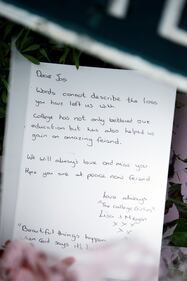 Dear Jo
Words cannot describe the loss
you have left us with
College has not only bettered our
education but has also helped us
gain an amazing friend.
We will always love and miss you
Hope you are at peace now friend
Love always
"The College Girlies"
Lisa & Megan
x x x
"Beautiful things happen
when God says it's